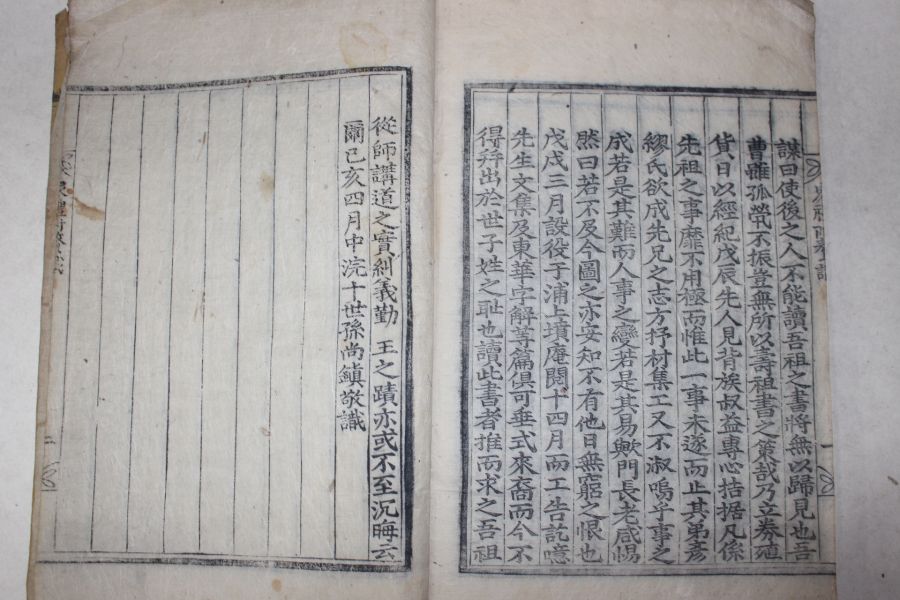 謀曰使後之人不能讀吾祖之書將無以歸見也吾
曹雖孤煢不振豈無所以壽祖書之策哉乃立券殖
貨日以經紀戊辰先人見背族叔益專心拮据凡係
先祖之事靡不用極而惟此一事未遂而止其弟彥
繆氏欲成先兄之志方抒材集工又不淑嗚乎事之
成若是其難而人事之變若是其易歟門長老咸惕
然曰若不及今圖之亦安知不有他日無窮之恨也
戊戌三月設役于浦上墳庵閱十四月而工告訖噫
先生文集及東華字解等篇俱可垂式來裔而今不
得幷出於世子姓之耻也讀此書者推而求之吾祖
從師講道之實糾義勤 王之蹟亦或不至沉晦云
爾己亥四月中浣十世孫尚鎭敬識